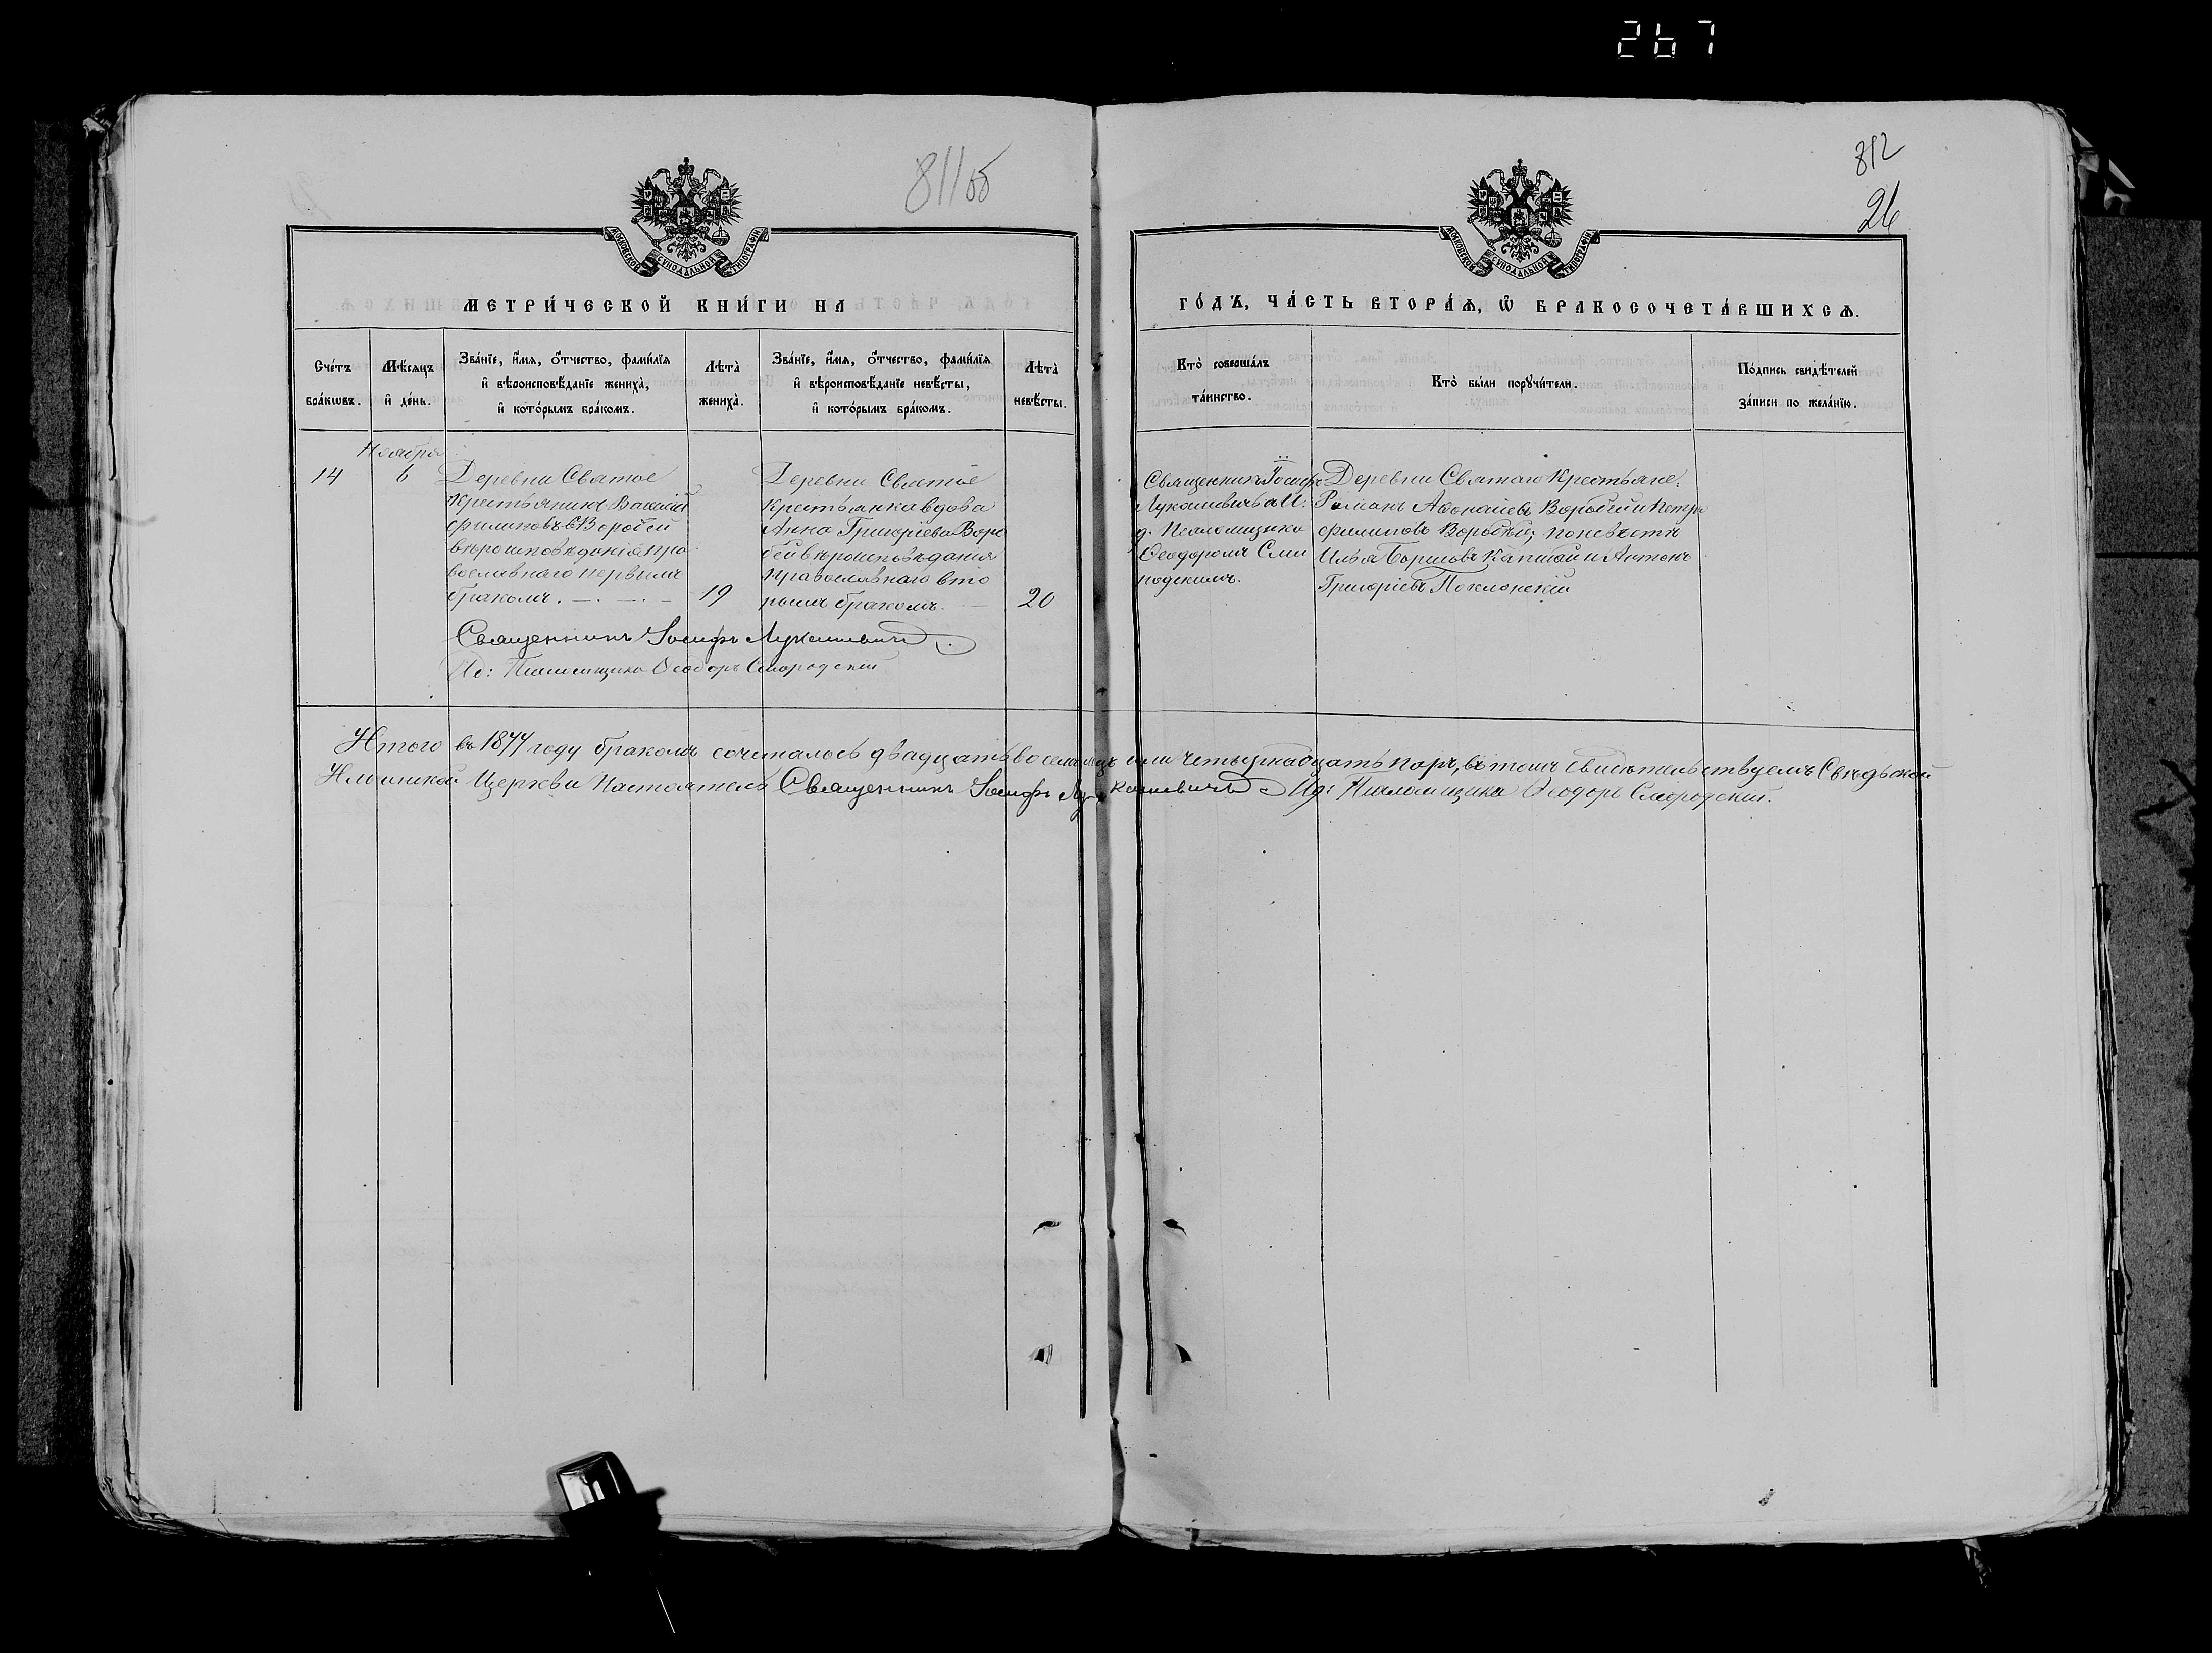 267
811об
812
26
МОСКОВСКОЙ СѴНОДАЛЬНОЙ ТИПОГРАФІИ
МЕТРИ́ЧЕСКОЙ КНИ́ГИ НА
Сче́тъ бра́кѡвъ.
Мѣ́сяцъ и҆ де́нь.
Зва́нїе, и҆́мя, ѻ҆́тчество, фами́лїя и҆ вѣроисповѣ́данїе жениха̀, и҆ кото́рымъ бра́комъ.
Лѣ̀та̀ жениха̀.
Зва́нїе, и҆́мя, ѻ҆́тчество, фами́лїя и҆ вѣроисповѣ́данїе невѣ́сты, и҆ кото́рымъ бра́комъ.
Лѣ̀та̀ невѣ́сты.
Ноября
14
6
Деревни Святое
крестьянинъ Василій
Филиповъ Воробей
вѣроисповѣданія пра
вославнаго первымъ
бракомъ.
19
Деревни Святое
крестьянка вдова
Анна Григоріева Воро
бей вѣроисповѣданія
православнаго вто
рымъ бракомъ.
20
Священникъ Іосифъ Лукашевичъ
Ид: Псаломщика Ѳеодоръ Смородскій
МОСКОВСКОЙ СѴНОДАЛЬНОЙ ТИПОГРАФІИ
ГО́ДЪ, ЧА́СТЬ ВТОРА́Ѧ, Ѡ҆ БРАКОСОЧЕТА́ВШИХСѦ.
Кто̀ соверша́лъ та́инство.
Кто̀ бы́ли порꙋчи́тели.
По́дпись свидѣ́телей за́писи по жела́нїю.
Священникъ Іосифъ
Лукашевичъ и И.
д. Псаломщика
Ѳеодоромъ Смо
родскимъ.
Деревни Святаго Крестьяне:
Романъ Авонаиевъ Воробей и Петръ
Филиповъ Воробей; по невѣстѣ
Илья Борисовъ Капитай и Антонъ
Григоріевъ Поклонскій
Итого въ 1877 году бракомъ сочеталось двадцать восемь лицъ или четырнадцать паръ, въ томъ свидѣтельствуемъ Свядьской
Ильинской Церкви Настоятель Священникъ Іосифъ Лукашевичъ Ид: Псаломщика Ѳеодоръ Смородскій.